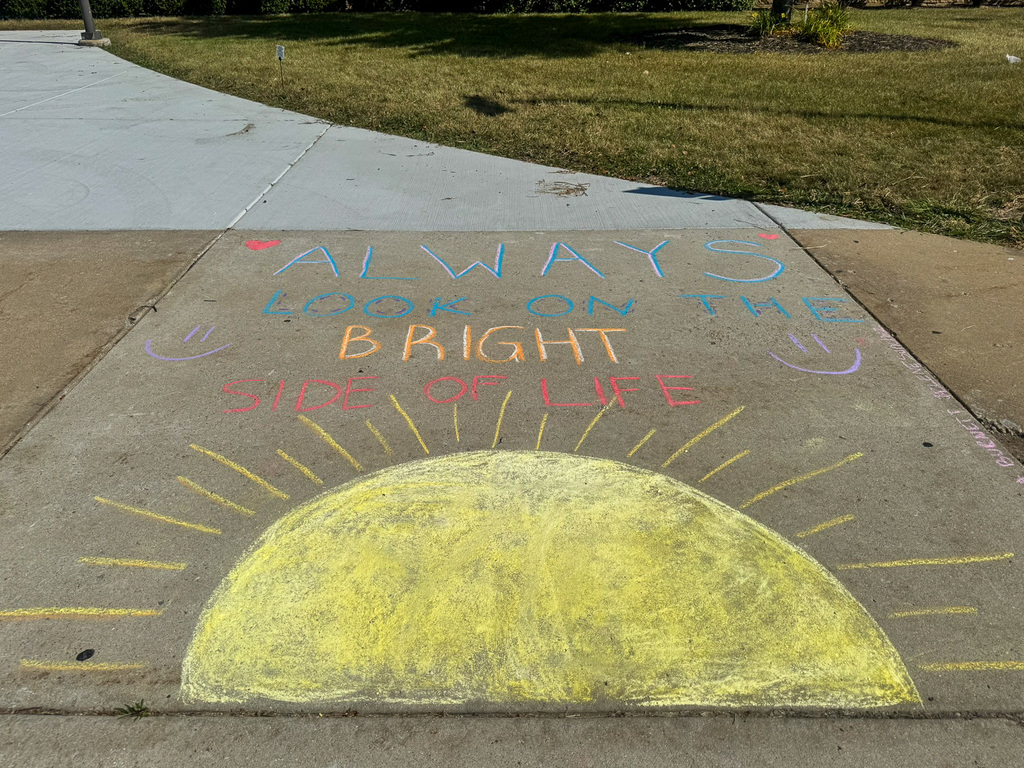 ALWAYS
LOOK ON THE
BRIGHT
SIDE OF LIFE